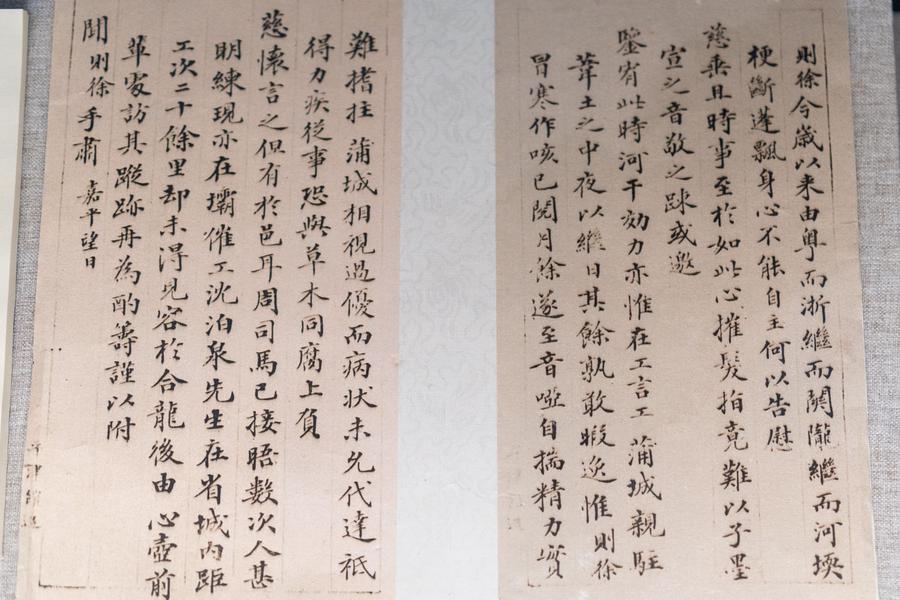 則徐今歲以来由粤而浙繼而関隴繼而河壖
梗斷蓬飄身心不能自主何以告慰
慈乘且時事至於如此心摧髮指竟難以子墨
宣之音敬之踈或邀
鑒宥此時河干効力亦惟在工言工 蒲城親駐
葦土之中夜以繼日其餘孰敢暇逸惟則徐
冒寒作咳已閲月餘遂至音啞自揣精力實
難搘拄 蒲城相視過優而病状未允代達祇
得力疾従事恐與草木同腐上負
慈懷言之但有於邑耳周司馬已接晤數次人甚
明練現亦在壩催工沈泊泉先生在省城内距
工次二十餘里却未得見容於合龍後由 心壺前
輩家訪其蹤跡再為酌籌謹以附
聞 則徐手肅 嘉平望日